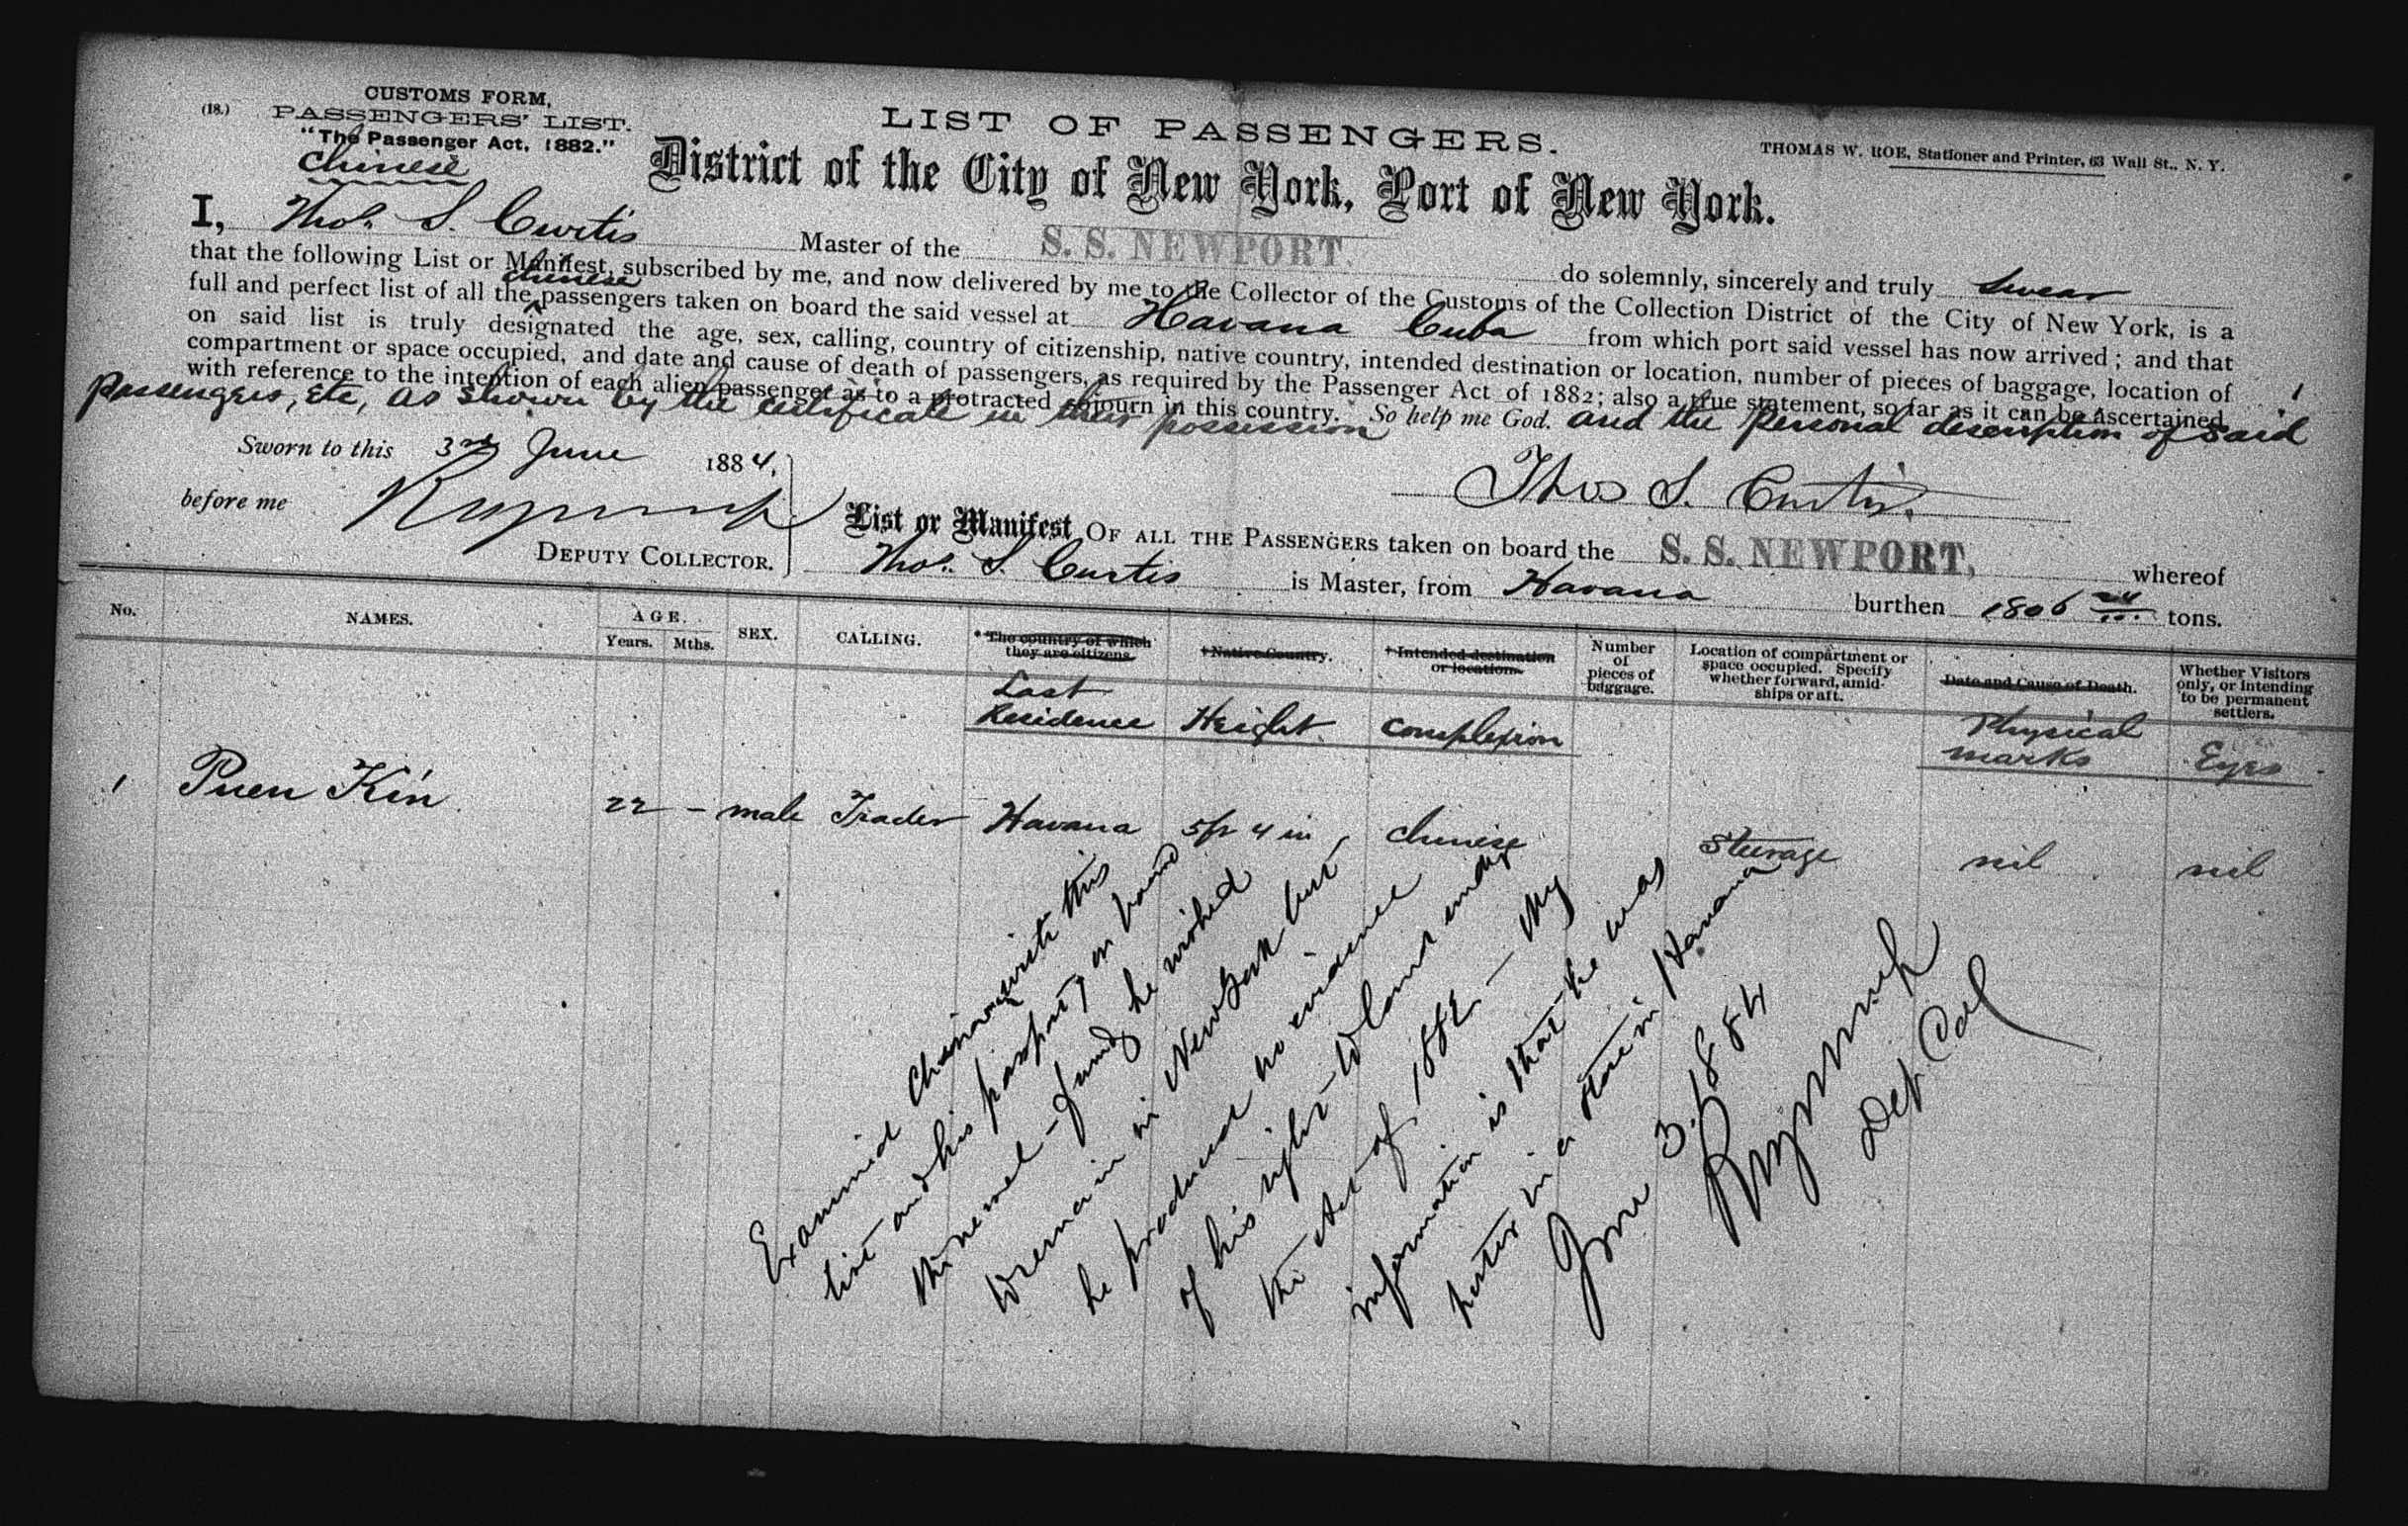 (18.)
CUSTOMS FORM,
PASSENGERS' LIST.
"The Passenger Act, 1882."
Chinese
LIST OF PASSENGERS.
THOMAS W. ROE, Stationer and Printer, 63 Wall St., N. Y.
District of the City of New York, Port of New York.
I, Thos. S. Curtis Master of the S. S. NEWPORT. do solemnly, sincerely and truly swear
that the following List or Manifest, subscribed by me, and now delivered by me to the Collector of the Customs of the Collection District of the City of New York, is a
full and perfect list of all the chinese passengers taken on board the said vessel at Havana Cuba from which port said vessel has now arrived; and that
on said list is truly designated the age, sex, calling, country of citizenship, native country, intended destination or location, number of pieces of baggage, location of
compartment or space occupied, and date and cause of death of passengers, as required by the Passenger Act of 1882; also a true statement, so far as it can be ascertained,
with reference to the intention of each alien passenger as to a protracted sojourn in this country. So help me God. and the personal description of said
passengers, etc, as shown by the certificate in their possession
1
Sworn to this 3rd June 1884,
before me
DEPUTY COLLECTOR.
Thos S. Curtis.
List or Manifest OF ALL THE PASSENGERS taken on board the S. S. NEWPORT, whereof
Thos. S. Curtis is Master, from Havana burthen 1806 tons.
No. NAMES. AGE. Years. Mths. SEX. CALLING. * The country of which they are citizens. † Native Country. ‡ Intended destination or location. Number of pieces of baggage. Location of compartment or space occupied. Specify whether forward, amid-ships or aft. Date and Cause of Death. Whether Visitors only, or intending to be permanent settlers.
Last Residence Height. Complexion Physical marks Eyes
1 Puen Kin 22 - male Trader Havana 5ft 4 in Chinese Steerage nil nil
Examined Chinaman with this
list and his passport, on board
the vessel - found he wished
to remain in New York but
he produced no evidence
of his right to land under
the Act of 1882. - My
information is that he was
porter in a store in Havana
June 3. 1884
Dep Col